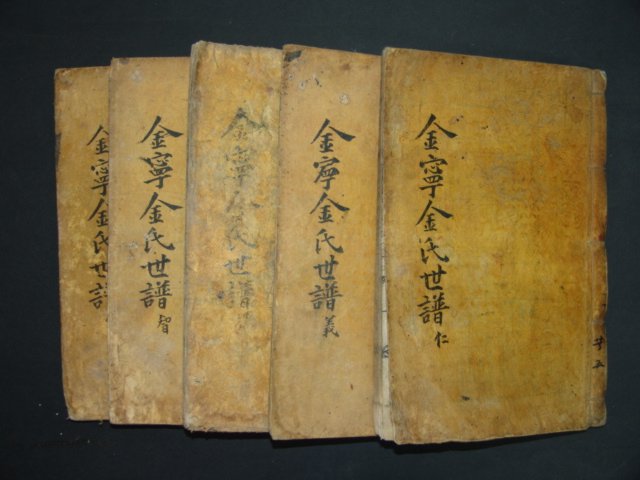 金寧金氏世譜 仁
共五
金寧金氏世譜 義
金寧金氏世譜
金寧金氏世譜 智
金寧金氏世譜